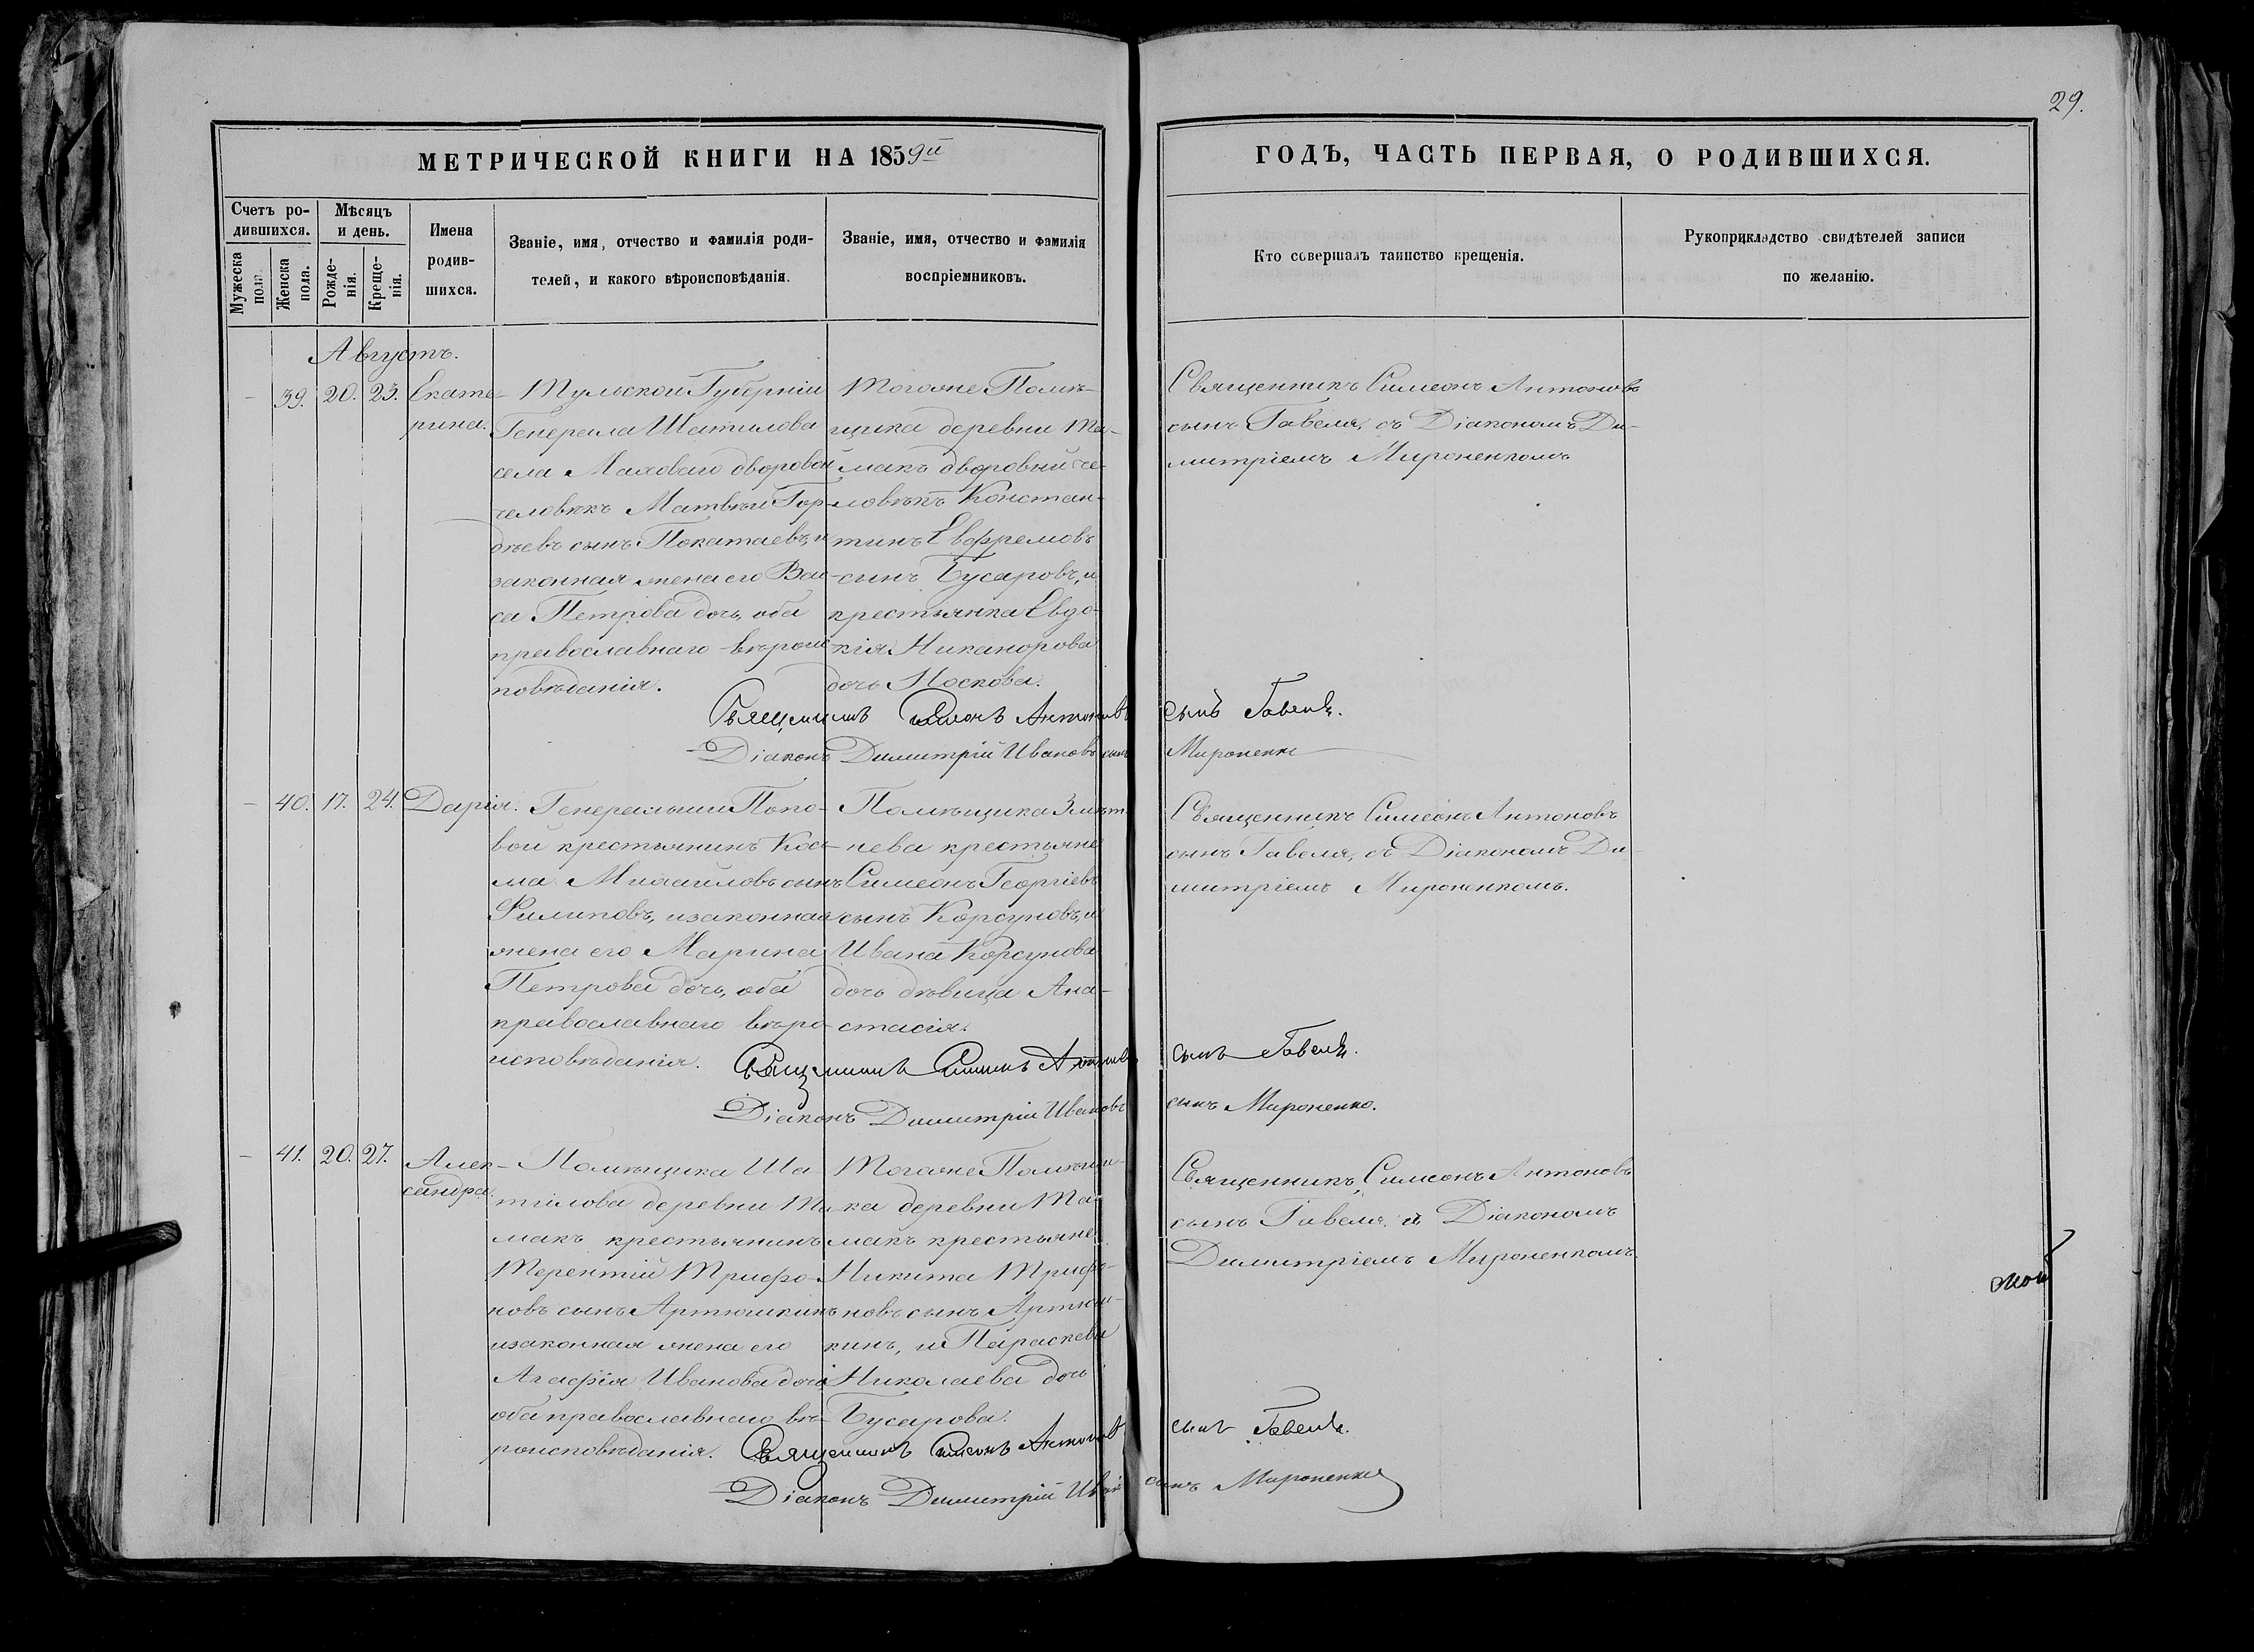 29.
МЕТРИЧЕСКОЙ КНИГИ НА 1859й
ГОДЪ, ЧАСТЬ ПЕРВАЯ, О РОДИВШИХСЯ.
Счетъ ро-
дившихся.
Мужеска
пола.
Женска
пола.
Мѣсяцъ
и день.
Рожде-
нія.
Креще-
нія.
Имена
родив-
шихся.
Званіе, имя, отчество и фамилія роди-
телей, и какого вѣроисповѣданія.
Званіе, имя, отчество и фамилія
воспріемниковъ.
Кто совершалъ таинство крещенія.
Рукоприкладство свидѣтелей записи
по желанію.
Августъ.
- 39. 20. 23.
Екате-
рина.
Тульской Губерніи
Генерала Шатилова
села Маховаго дворовой
человѣкъ Матвѣй Гор-
дѣевъ сынъ Покатаевъ, и
законная жена его Вас-
са Петрова дочь, оба
православнаго вѣроис-
повѣданія.
Тогоже Помѣ-
щика деревни Та-
макъ дворовый че-
ловѣкъ Констан-
тинъ Евфремовъ
сынъ Бусаровъ, и
крестьянка Евдо-
кія Никанорова
дочь Носкова.
Священникъ Симеонъ Антоновъ
сынъ Гавеля, съ Діакономъ Ди-
митріемъ Мироненкомъ
Священникъ Симеонъ Антоновъ сынъ Гавеля.
Діаконъ Димитрій Ивановъ сынъ Мироненко
- 40. 17. 24.
Дарія.
Генеральши Попо-
вой крестьянинъ Кось-
ма Михаиловъ сынъ
Филиповъ, и законная
жена его Марина
Петрова дочь, оба
православнаго вѣро-
исповѣданія.
Помѣщика
нева крестьяне
Симеонъ Георгіевъ
сынъ Корсуновъ, и
Ивана Корсунова
дочь дѣвица Ана-
стасія.
Священникъ Симеонъ Антоновъ
сынъ Гавеля, съ Діакономъ Ди-
митріемъ Мироненкомъ.
Священникъ Симеонъ Антоновъ сынъ Гавеля.
Діаконъ Димитрій Ивановъ сынъ Мироненко.
- 41. 20. 27.
Алек-
сандра.
Помѣщика Ша-
тилова деревни Та-
макъ крестьянинъ
Терентій Трифо-
новъ сынъ Артюшкинъ
и законная жена его
Агафія Иванова дочь
оба православнаго вѣ-
роисповѣданія.
Тогоже Помѣщи-
ка деревни Та-
макъ крестьяне
Никита Трифо-
новъ сынъ Артюш-
кинъ, и Параскева
Николаева дочь
Бусарова.
Священникъ Симеонъ Антоновъ
сынъ Гавеля, съ Діакономъ
Димитріемъ Мироненкомъ.
Священникъ Симеонъ Антоновъ сынъ Гавеля.
Діаконъ Димитрій Иванов сынъ Мироненко